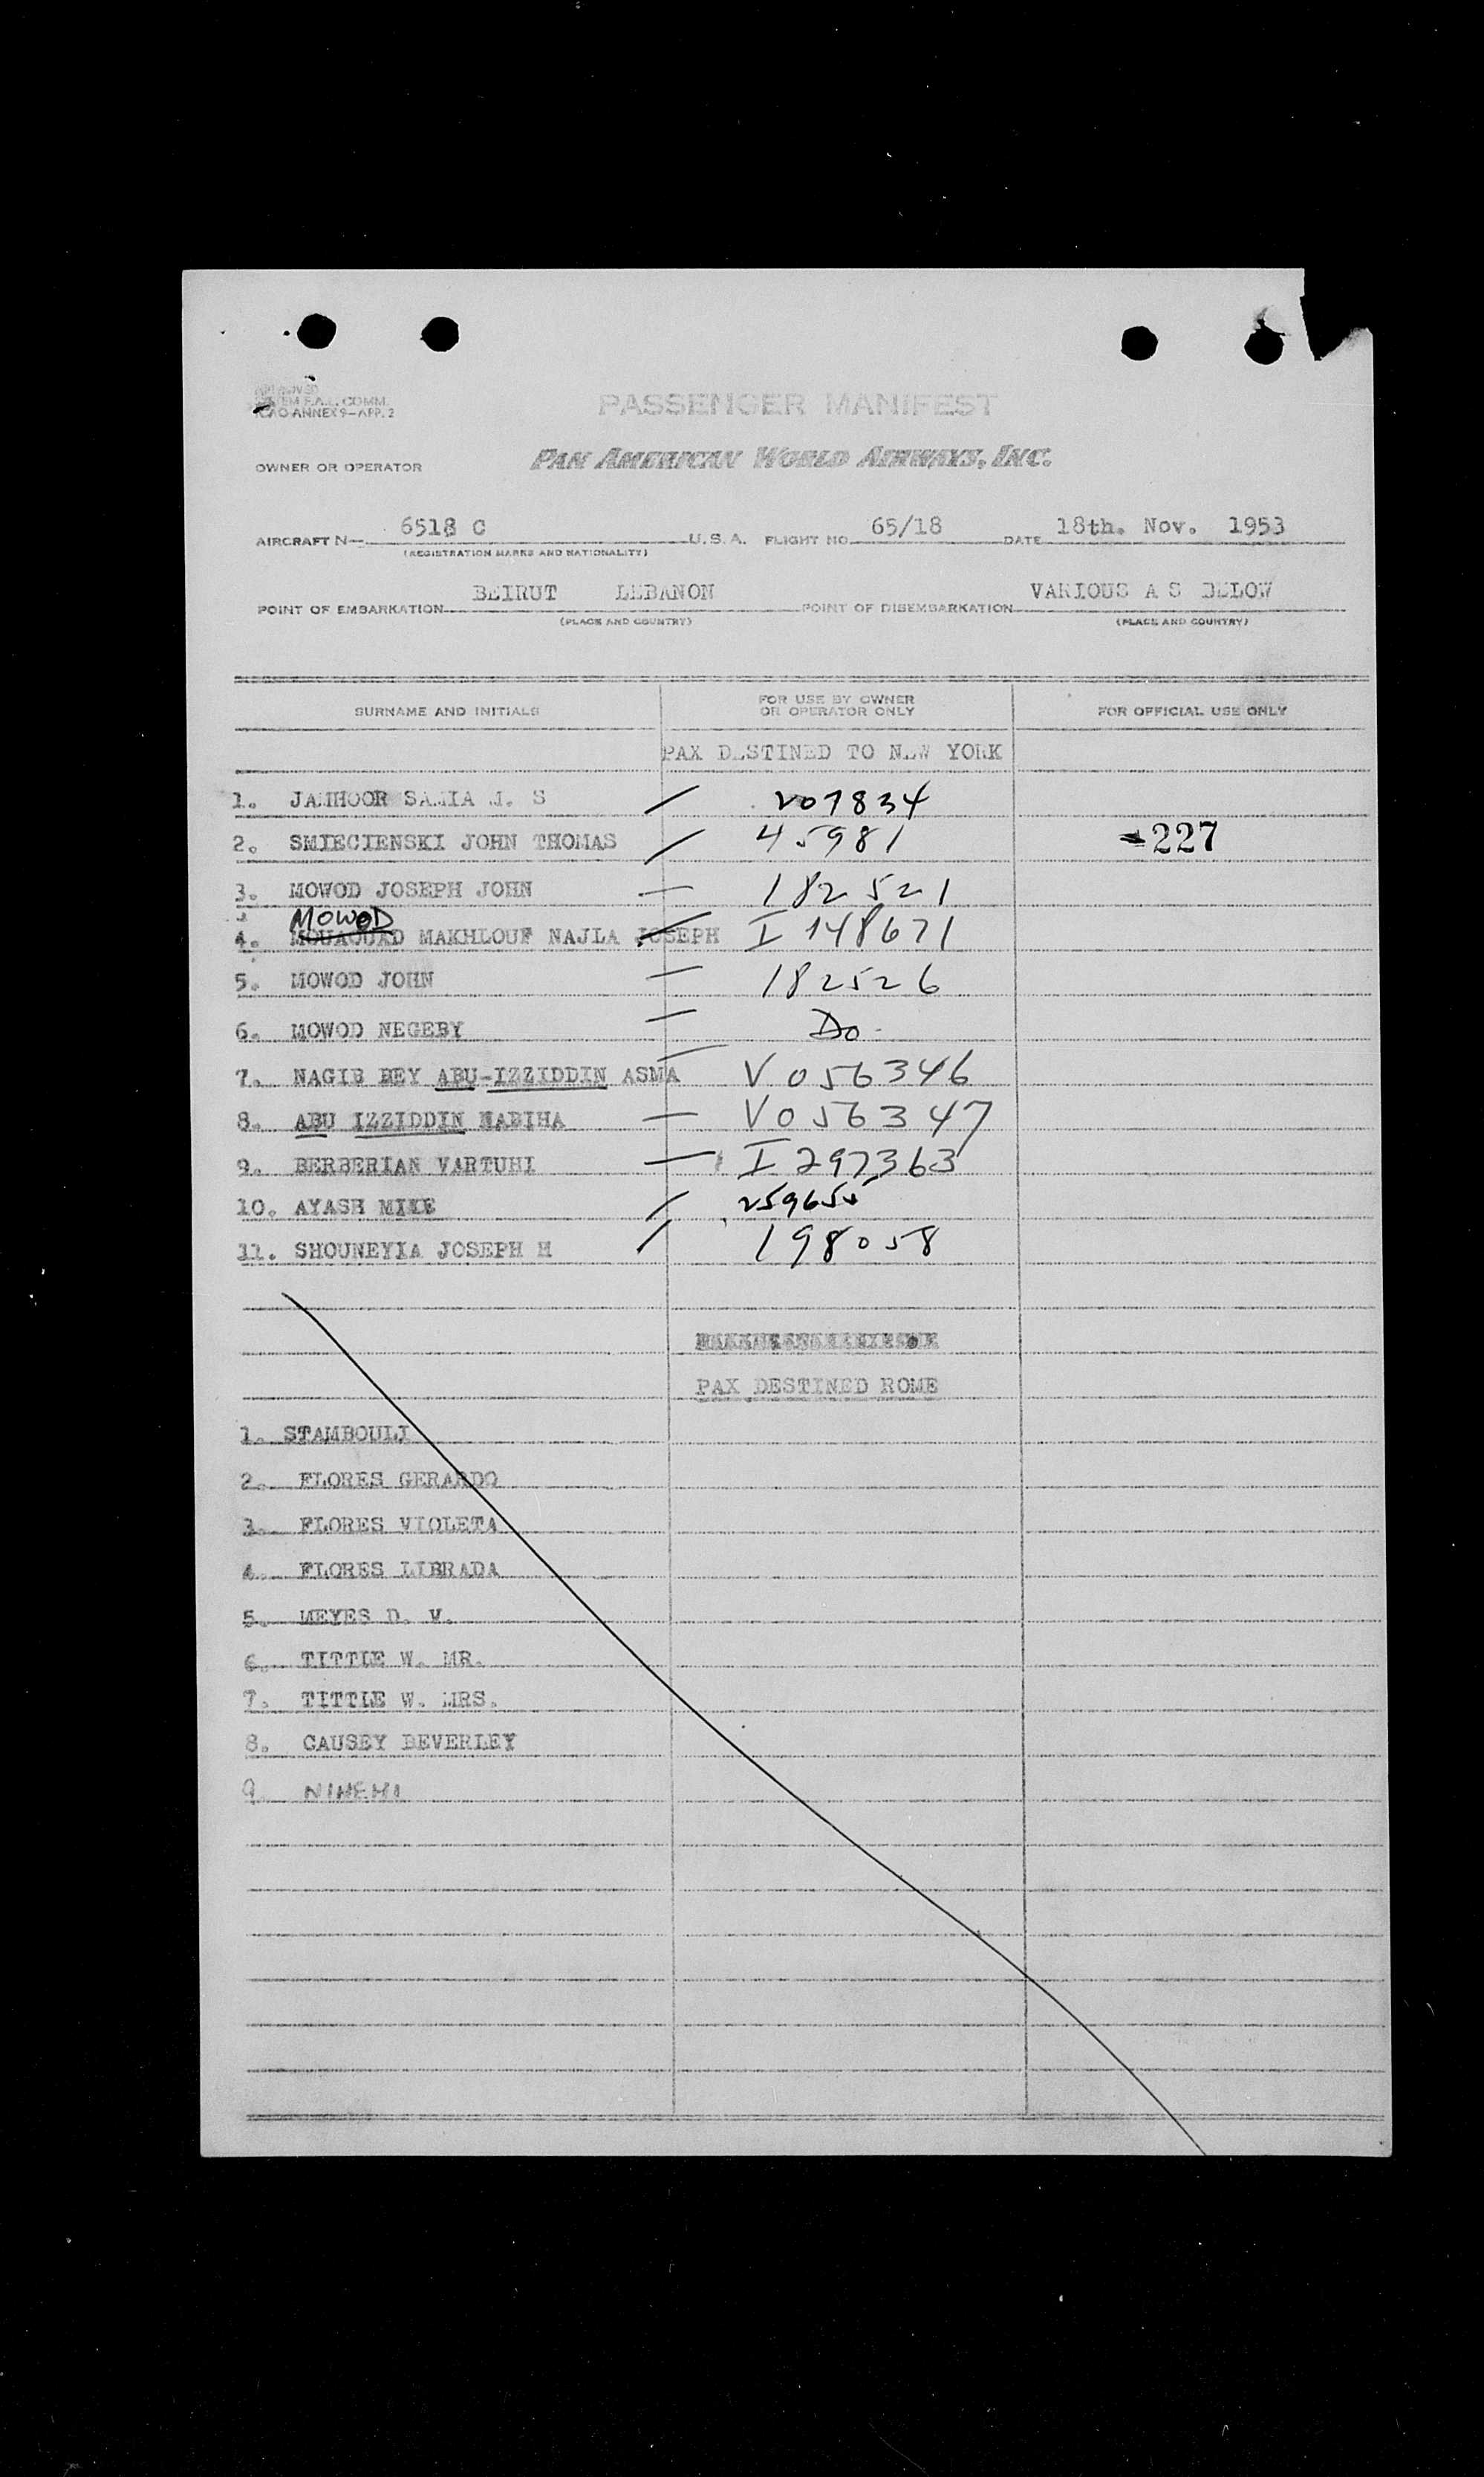 F.A.L. COMM.
ICAO ANNEX 9—APP. 2
PASSENGER MANIFEST
OWNER OR OPERATOR PAN AMERICAN WORLD AIRWAYS, INC.
AIRCRAFT N— 6518 C U.S.A. FLIGHT NO. 65/18 DATE 18th. Nov. 1953
(REGISTRATION MARKS AND NATIONALITY)
POINT OF EMBARKATION BEIRUT LEBANON POINT OF DISEMBARKATION VARIOUS A S BELOW
(PLACE AND COUNTRY) (PLACE AND COUNTRY)
SURNAME AND INITIALS FOR USE BY OWNER OR OPERATOR ONLY FOR OFFICIAL USE ONLY
PAX DESTINED TO NEW YORK
1. JAMHOOR SAMIA M. S / 207834
2. SMIECIENSKI JOHN THOMAS / 45981 227
3. MOWOD JOSEPH JOHN — 182521
MOWOD
4. MOUAOUAD MAKHLOUF NAJLA JOSEPH I 148671
5. MOWOD JOHN — 182526
6. MOWOD NEGEBY — Do
7. NAGIB BEY ABU-IZZIDDIN ASMA — V 056346
8. ABU IZZIDDIN NABIHA — V 056347
9. BERBERIAN VARTUHI — I 297363
10. AYASH MIKE / 259655
11. SHOUNEYIA JOSEPH H / 198058
PAX DESTINED ROME
1. STAMBOULI
2. FLORES GERARDO
3. FLORES VIOLETA
4. FLORES LIBRADA
5. MEYES D. V.
6. TITTLE W. MR.
7. TITTLE W. MRS.
8. CAUSEY BEVERLEY
9 NIHEHI